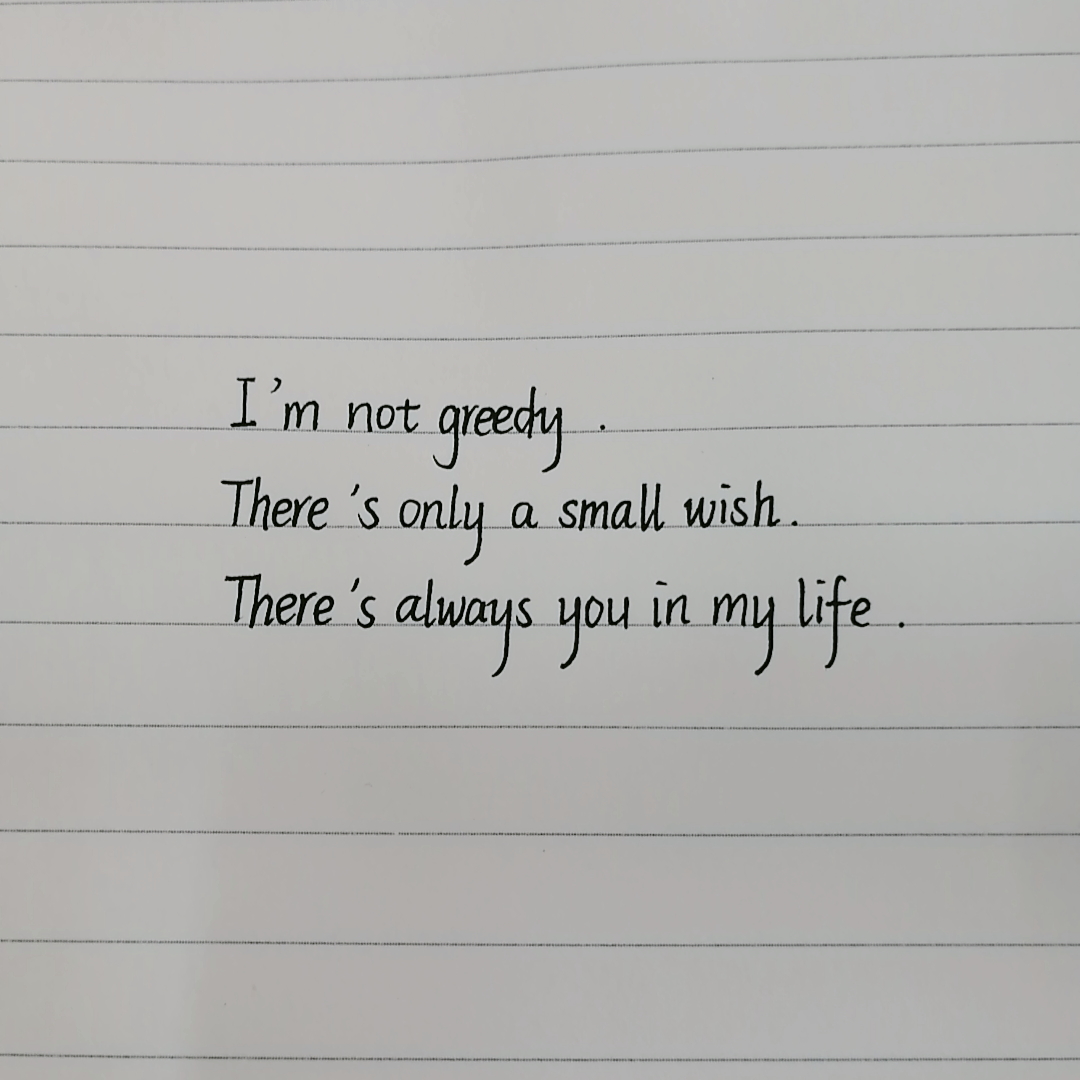 I'm not greedy .
There's only a small wish.
There's always you in my life .